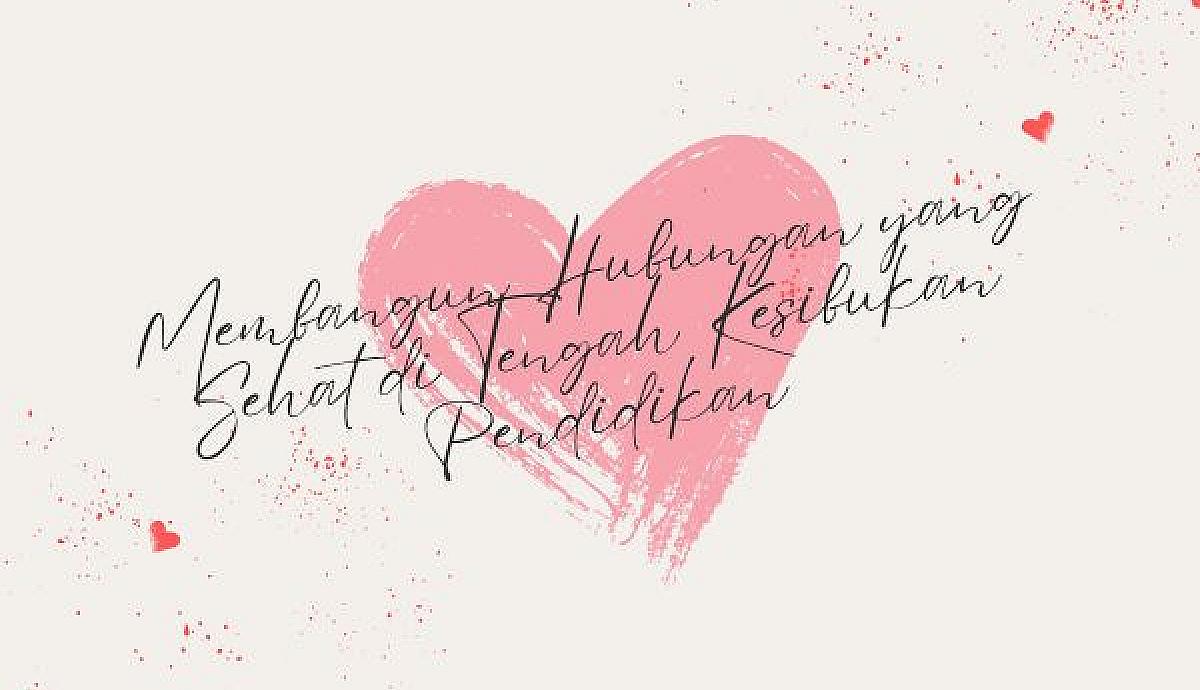 Membangun Hubungan yang
Sehat di Tengah Kesibukan
Pendidikan